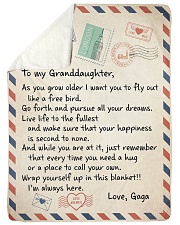 To my Granddaughter,
As you grow older I want you to fly out
like a free bird.
Go forth and pursue all your dreams.
Live life to the fullest
and make sure that your happiness
is second to none.
And while you are at it, just remember
that every time you need a hug
or a place to call your own.
Wrap yourself up in this blanket!!
I'm always here.
Love, Gaga